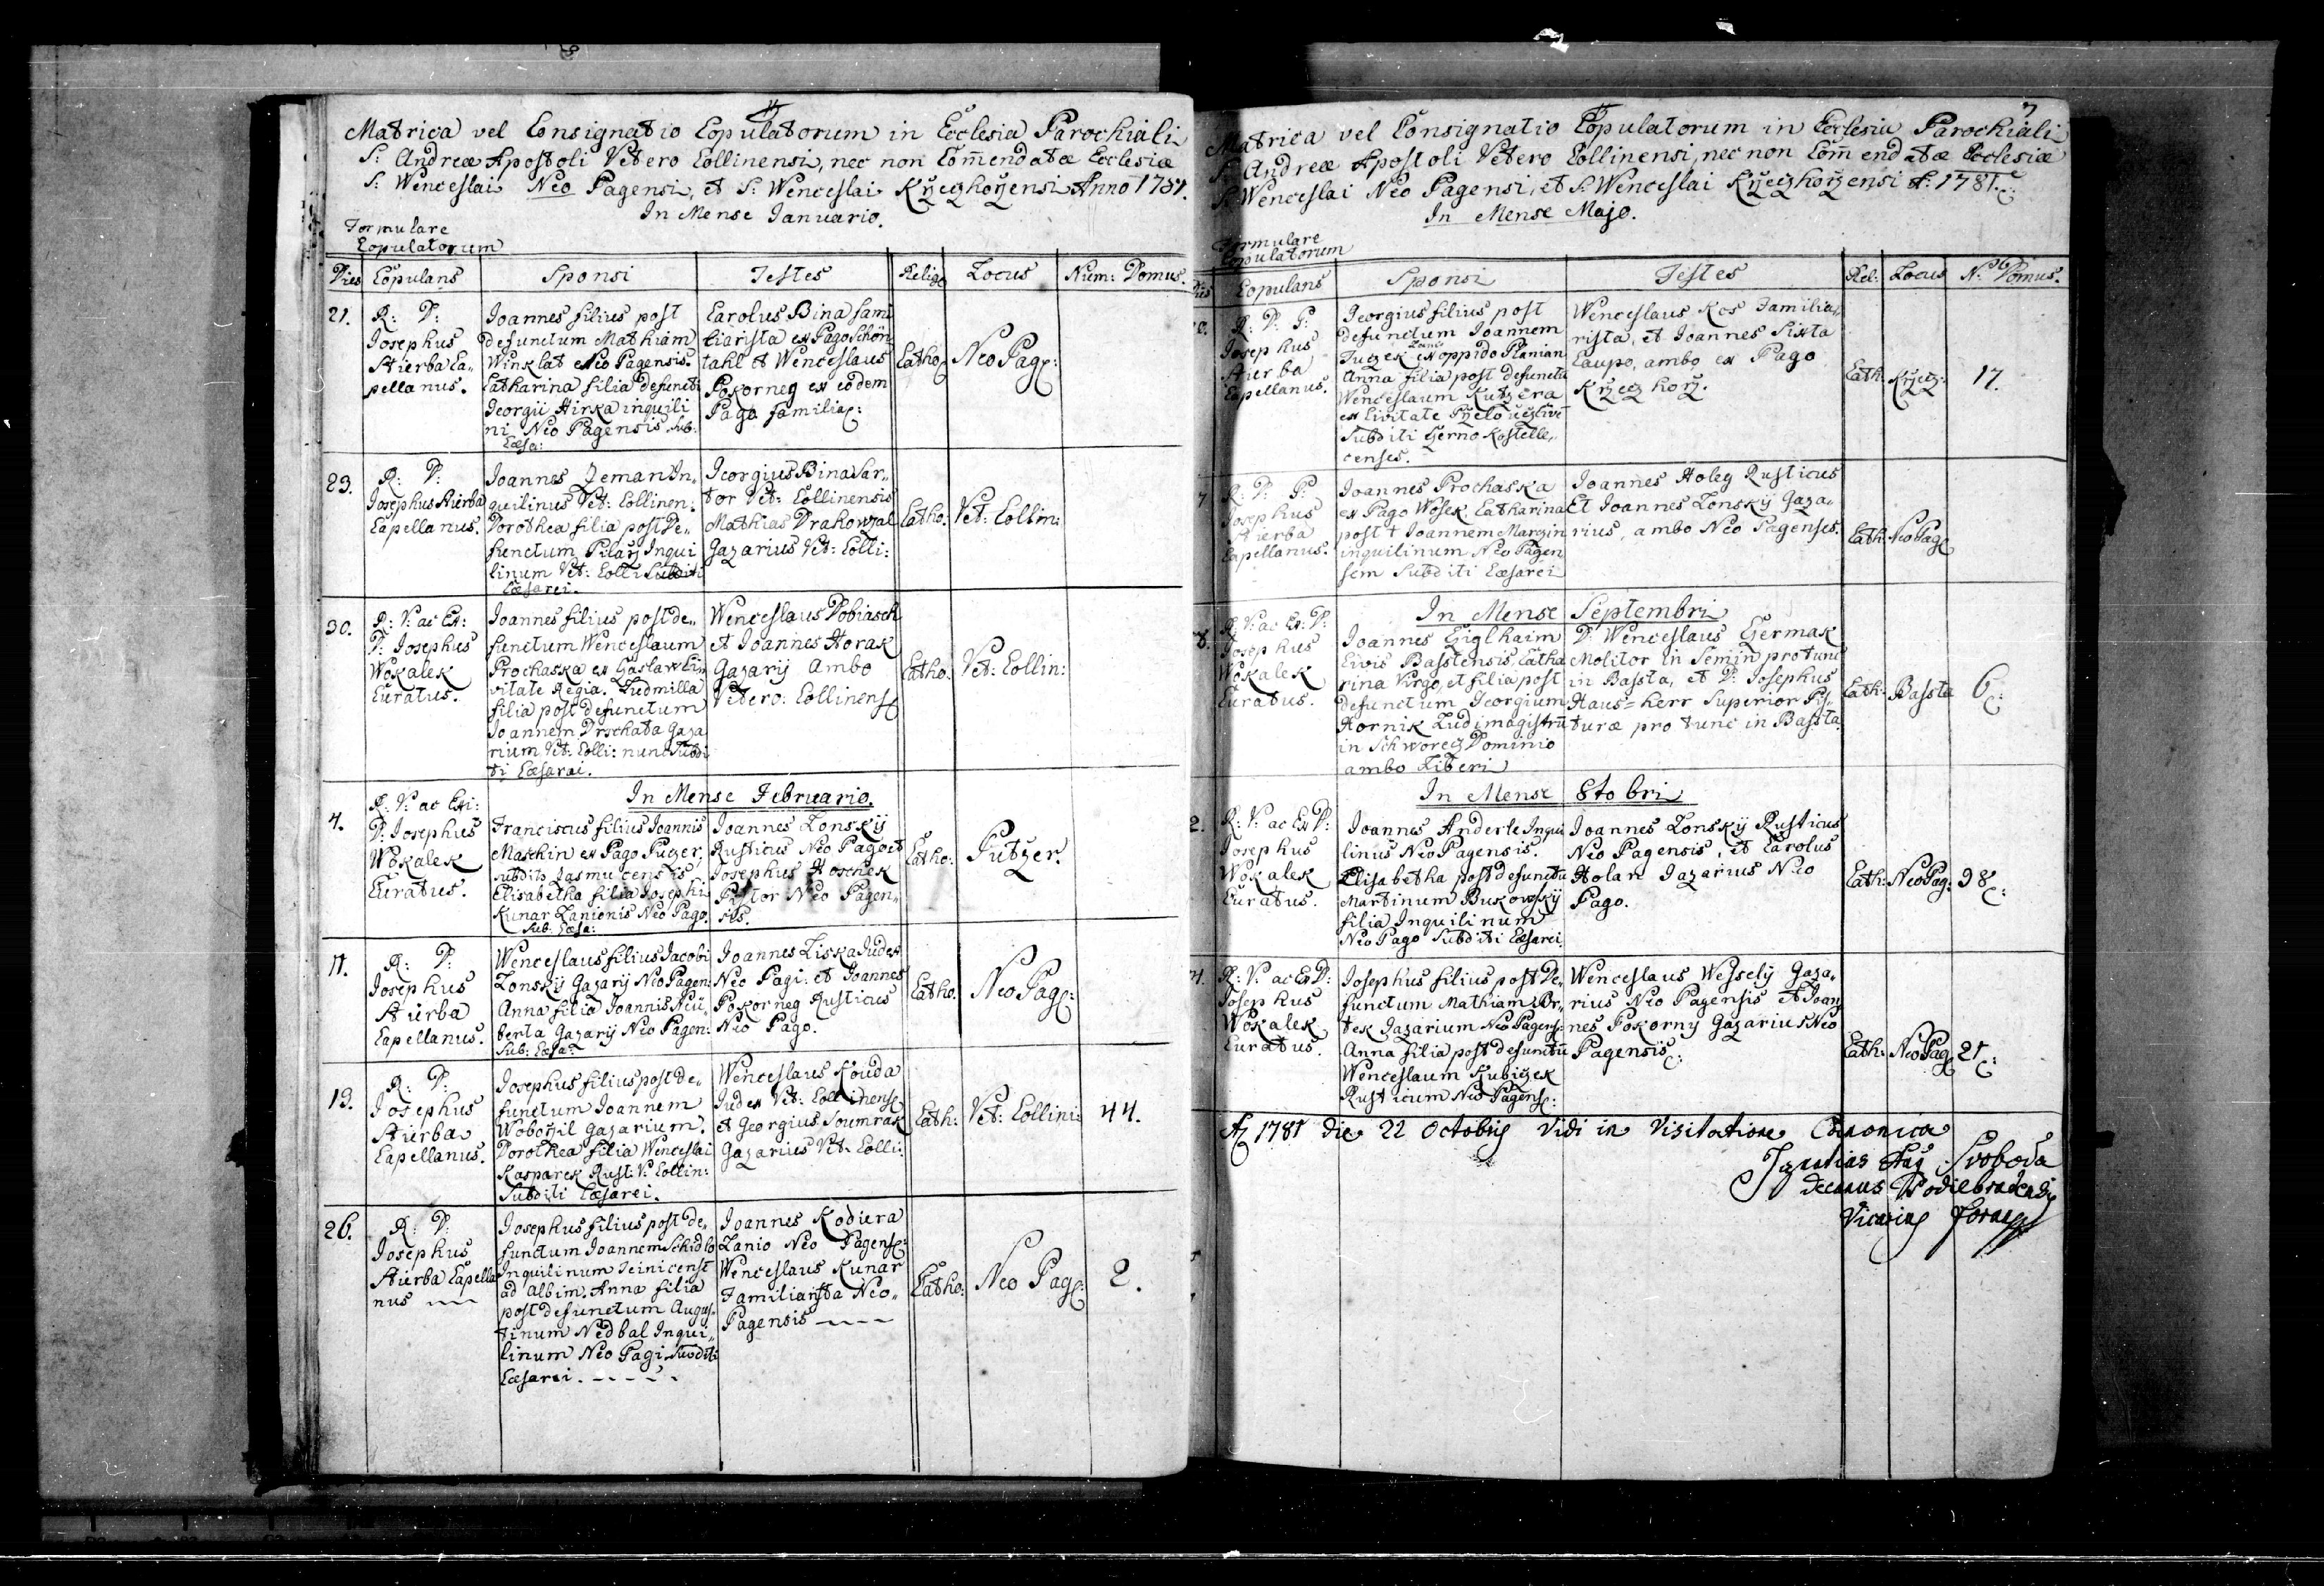 Matrica vel Consignatio Copulatorum in Ecclesia Parochiali
S: Andreæ Apostoli Vetero Collinensi, nec non Com̄endatæ Ecclesiæ
S: Wenceslai Neo Pagensi, et S: Wenceslai Krzeczhorzensi Anno 1781.
In Mense Januario.
Formulare
Copulatorum
Dies Copulans Sponsi Testes Religo Locus Num: Domus.
21.
R: D:
Josephus
Stierba Ca„
pellanus.
Joannes filius post
defunctum Mathiam
Winklat Neo Pagensis.
Catharina filia defuncti
Georgii Hirka inquili
ni Neo Pagensis Sub:
Cæsa:
Carolus Bina fami
liarista ex Pago Schön
tahl et Wenceslaus
Pokorney ex eodem
Pago familia:
Catho: Neo Pag:
29.
R: D:
Josephus Stierba
Capellanus.
Joannes Zeman In„
quilinus Vet: Collinen:
Dorothea filia post De„
functum Pilarz Inqui
linum Vet: Colli Subditi
Cæsarei.
Georgius Bina Sar„
tor Vet: Collinensis
Mathias Drahowzal
Gazarius Vet: Colli:
Catho: Vet: Collin:
30.
R: V: ac Ex:
D: Josephus
Wokalek
Curatus.
Joannes filius post de„
functum Wenceslaum
Prochaska ex Czaslaw Ci„
vitate Regia. Ludmilla
filia post defunctum
Joannem Drschata Gaza
rium Vet: Colli: nunc Subdi
ti Cæsarai.
Wenceslaus Dobiasch
et Joannes Horak
Gazarij Ambo
Vetero: Collinens
Catho: Vet: Collin:
In Mense Februario.
4.
R: V: ac Exi:
D: Josephus
Wokalek
Curatus.
Franciscus filius Joannis
Maschin ex Pago Puczer,
subdits Zasmucensis
Elisabetha filia Josephi
Kunar Lanionis Neo Pago.
Sub: Cæsa:
Joannes Lonskÿ
Rusticus Neo Pago et
Josephus Hoschek
Pistor Neo Pagen„
sis.
Catho: Putzer.
11.
R: D:
Josephus
Stierba
Capellanus.
Wenceslaus filius Jacobi
Lonskÿ Gazarij Neo Pagen:
Anna filia Joannis Neu„
berta Gazarij Neo Pagen:
Sub: Cæsa:
Joannes Liska Judex
Neo Pagi: et Joannes
Pokorneg Rusticus
Neo Pago.
Catho: Neo Pag:
13.
R: D:
Josephus
Stierba
Capellanus.
Josephus filius post de„
functum Joannem
Woborzil Gazarium.
Dorothea filia Wenceslai
Kasparek Rust: V: Collin:
Subditi Cæsarei.
Wenceslaus Kouda
Judex Vet: Collinens
et Georgius Soumrak
Gazarius Vet: Colli:
Cath: Vet: Collini: 44.
26.
R: D:
Josephus
Stierba Capella
nus
Josephus filius post de„
functum Joannem Schidlo
Inquilinum Teinicens
ad Albim. Anna filia
post defunctum Augus„
tinum Nedbal Inqui„
linum Neo Pagi Subditi
Cæsarei.
Joannes Kodiera
Lanio Neo Pagens:
Wenceslaus Kunar
Familiarista Neo„
Pagensis
Catho: Neo Pag: 2.
7
Matrica vel Consignatio Copulatorum in Ecclesia Parochiali
S: Andreæ Apostoli Vetero Collinensi, nec non Com̄endatæ Ecclesiæ
S: Wenceslai Neo Pagensi, et S: Wenceslai Krzeczhorzensi A: 1781.
In Mense Majo.
Formulare
Copulatorum
Copulans Sponsi Testes Rel: Locus N: Domus.
R: D: P:
Josephus
Stierba
Capellanus.
Georgius filius post
defunctum Joannem
Tuczek ex oppido Planian
Anna filia post defunctu
Wenceslaum Kutzera
ex Civitate
Subditi Czerno Kostelle„
censes.
Wenceslaus Kos Familia„
rista, et Joannes Sixta
Caupo, ambo ex Pago
Krzeczhorz.
Cath: Krzecz: 17.
7
R: D: P:
Josephus
Stierba
Capellanus.
Joannes Prochaska
ex Pago Wosek. Catharina
post † Joannem Marzin
inquilinum Neo Pagen
sem Subditi Cæsarei
Joannes Holeg Rusticus
Et Joannes Lonskÿ Gaza„
rius, ambo Neo Pagenses.
Cath: Neo Pag
In Mense Septembri
8.
R: V: ac Ex: D:
Josephus
Wokalek
Curatus.
Joannes Cziglhaim
Civis Basstensis, Catha
rina Virgo, et filia post
defunctum Georgium
Hornik Ludimagistru
in Schworecz Dominio
ambo Liberi
D: Wenceslaus Czermak
Molitor in Semin pro tunc
in Bassta, et D: Josephus
Haus=herr Superior Pis„
turæ pro tunc in Bassta.
Cath: Bassta 6:
In Mense 8to bri
2.
R: V: ac Ex D:
Josephus
Wokalek
Curatus.
Joannes Anderle Inqui
linus Neo Pagensis.
Elisabetha post defunctu
Martinum Bukowskÿ
filia Inquilinum
Neo Pago Subditi Cæsarei.
Joannes Lonskÿ Rusticus
Neo Pagensis, et Carolus
Holan Gazarius Neo
Pago.
Cath: Neo Pag: 98:
R: V: ac Ex D:
Josephus
Wokalek
Curatus.
Josephus filius post De„
functum Mathiam Br„
tek Gazarium Neo Pagens:
Anna filia post defunctū
Wenceslaum Kubiczek
Rusticum Neo Pagens:
Wenceslaus Wesselÿ Gaza„
rius Neo Pagensis et Joan„
nes Pokorny Gazarius Neo
Pagensis:
Cath: Neo Pag 21:
Aº 1781 die 22 Octobris Vidi in Visitatione Canonica
Ignatius Aug Svoboda
Decanus Podiebradensis
Vicarius foraneus